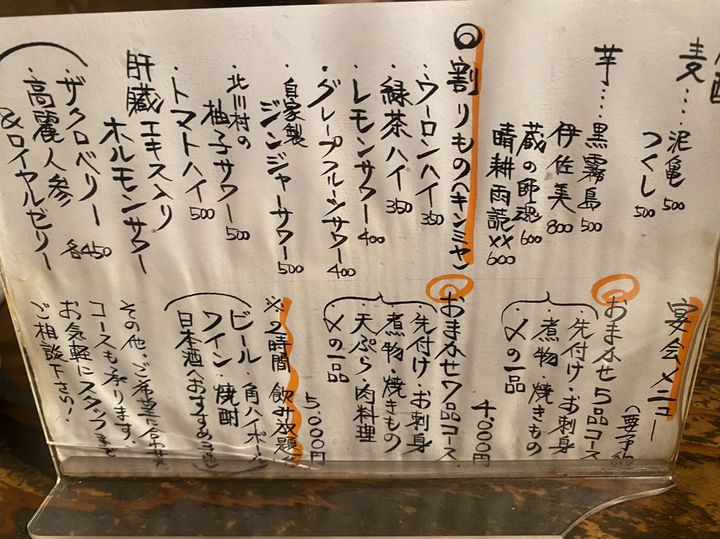 麦…泥亀 500
つくし 500
芋…黒霧島 500
伊佐美 800
蔵の師魂 600
晴耕雨読 600
◎割りもの(キンミヤ)
・ウーロンハイ 350
・緑茶ハイ 350
・レモンサワー 400
・グレープフルーツサワー 400
・自家製
ジンジャーサワー 500
・北川村の
柚子サワー 500
・トマトハイ 500
肝臓エキス入り
ホルモンサワー
・ザクロベリー 各450
・高麗人参
&ロイヤルゼリー
宴会メニュー
(要予約)
◎おまかせ5品コース
先付け・お刺身
煮物・焼きもの
〆の一品
4,000円
◎おまかせ7品コース
先付け・お刺身
煮物・焼きもの
天ぷら・肉料理
〆の一品
5,000円
※2時間飲み放題
ビール・角ハイボール
ワイン・焼酎
日本酒(おすすめ
その他、ご希望に合わせ
コースも承ります。
お気軽にスタッフまで
ご相談下さい!